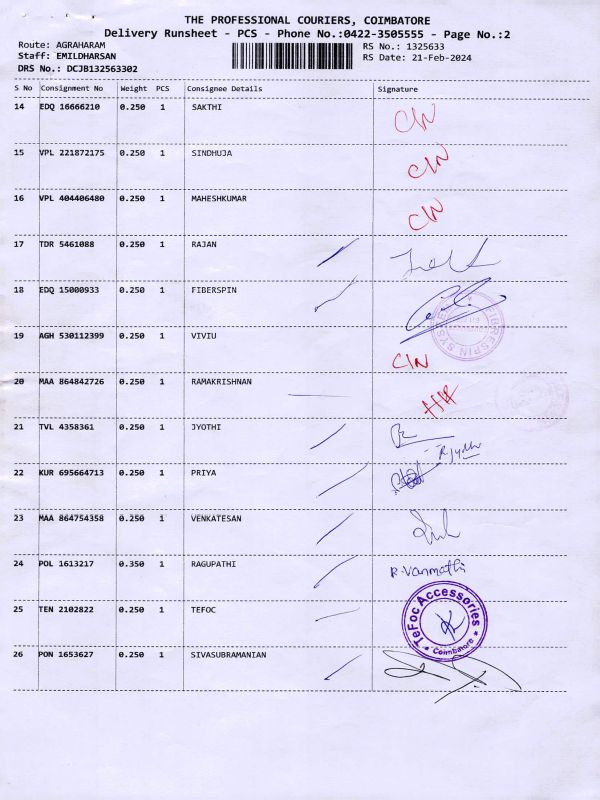 THE PROFESSIONAL COURIERS, COIMBATORE
Delivery Runsheet - PCS - Phone No.:0422-3505555 - Page No.:2
Route: AGRAHARAM
Staff: EMILDHARSAN
DRS No.: DCJB132563302
RS No.: 1325633
RS Date: 21-Feb-2024
S No Consignment No Weight PCS Consignee Details Signature
14 EDQ 16666210 0.250 1 SAKTHI CIN
15 VPL 221872175 0.250 1 SINDHUJA CIN
16 VPL 404406480 0.250 1 MAHESHKUMAR CIN
17 TDR 5461088 0.250 1 RAJAN
18 EDQ 15000933 0.250 1 FIBERSPIN
19 AGH 530112399 0.250 1 VIVIU CIN
20 MAA 864842726 0.250 1 RAMAKRISHNAN
21 TVL 4358361 0.250 1 JYOTHI
22 KUR 695664713 0.250 1 PRIYA
23 MAA 864754358 0.250 1 VENKATESAN
24 POL 1613217 0.350 1 RAGUPATHI R. Vanmathi
25 TEN 2102822 0.250 1 TEFOC
TeFoc Accessories
* Coimbatore *
26 PON 1653627 0.250 1 SIVASUBRAMANIAN